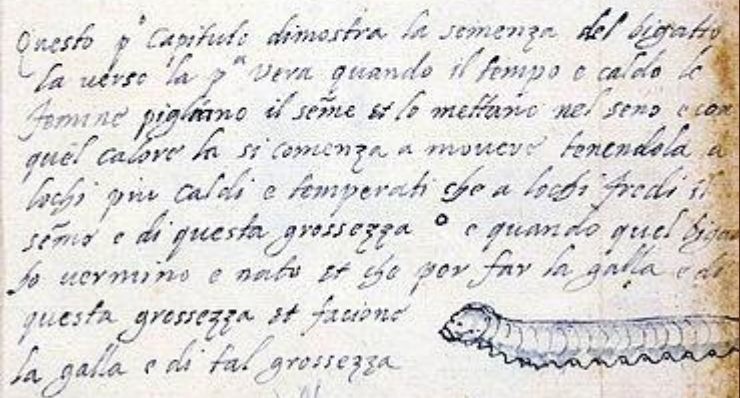 Questo p° Capitulo dimostra la semenza del bigatto
la verso la pª vera quando il tempo e caldo le
femine pigliano il seme et lo mettano nel seno e con
quel calore la si comenza a movere tenendola a
lochi piu caldi e temperati che a lochi fredi il
seme e di questa grossezza o e quando quel bigat
to vermino e nato et che per far la galla e di
questa grossezza et facione
la galla e di tal grossezza